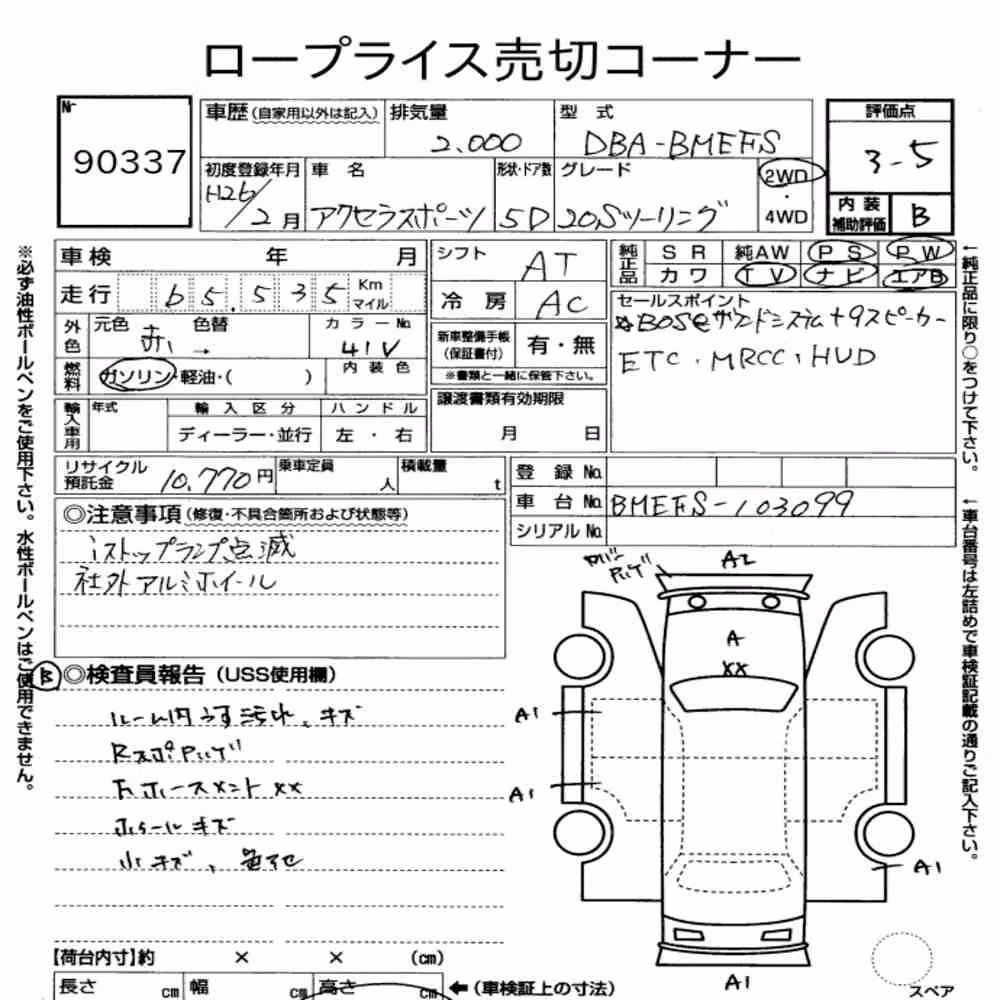 ロープライス売切コーナー
Nr 90337
車歴(自家用以外は記入) 排気量 2.000 型式 DBA-BMEFS
評価点 3-5
初度登録年月 H26/2月 車名 アクセラスポーツ 形状・ドア数 5D グレード 20Sツーリング 2WD・4WD
内装補助評価 B
車検 年 月
シフト AT
純正品 SR 純AW PS PW
カワ TV ナビ エアB
走行 65.535 Km マイル
冷房 AC
セールスポイント
☆BOSEサウンドシステム+9スピーカー
ETC、MRCC、HUD
外色 元色 赤 → 色替 カラーNo. 41V
新車整備手帳(保証書付) 有・無
※書類と一緒に保管下さい。
燃料 ガソリン・軽油・( ) 内装色
譲渡書類有効期限 月 日
輸入車用 年式 輸入区分 ハンドル
ディーラー・並行 左・右
リサイクル預託金 10,770円 乗車定員 人 積載量 t
登録No.
車台No. BMEFS-103099
シリアルNo.
◎注意事項(修復・不具合箇所および状態等)
iストップランプ点滅
社外アルミホイール
B ◎検査員報告(USS使用欄)
ルーム内うす汚れ、キズ
Rスポ
ホイールキズ
小キズ、
A2
A
XX
A1
A1
A1
A1
【荷台内寸】約 × × (cm)
長さ cm 幅 cm 高さ cm ←(車検証上の寸法)
スペア
※必ず油性ボールペンをご使用下さい。水性ボールペンはご使用できません。
←純正品に限り○をつけて下さい。
←車台番号は左詰めで車検証記載の通りご記入下さい。